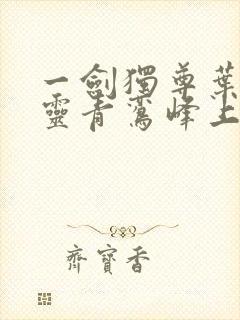 一劍獨尊葉
靈青鸞峰上
齊寶香